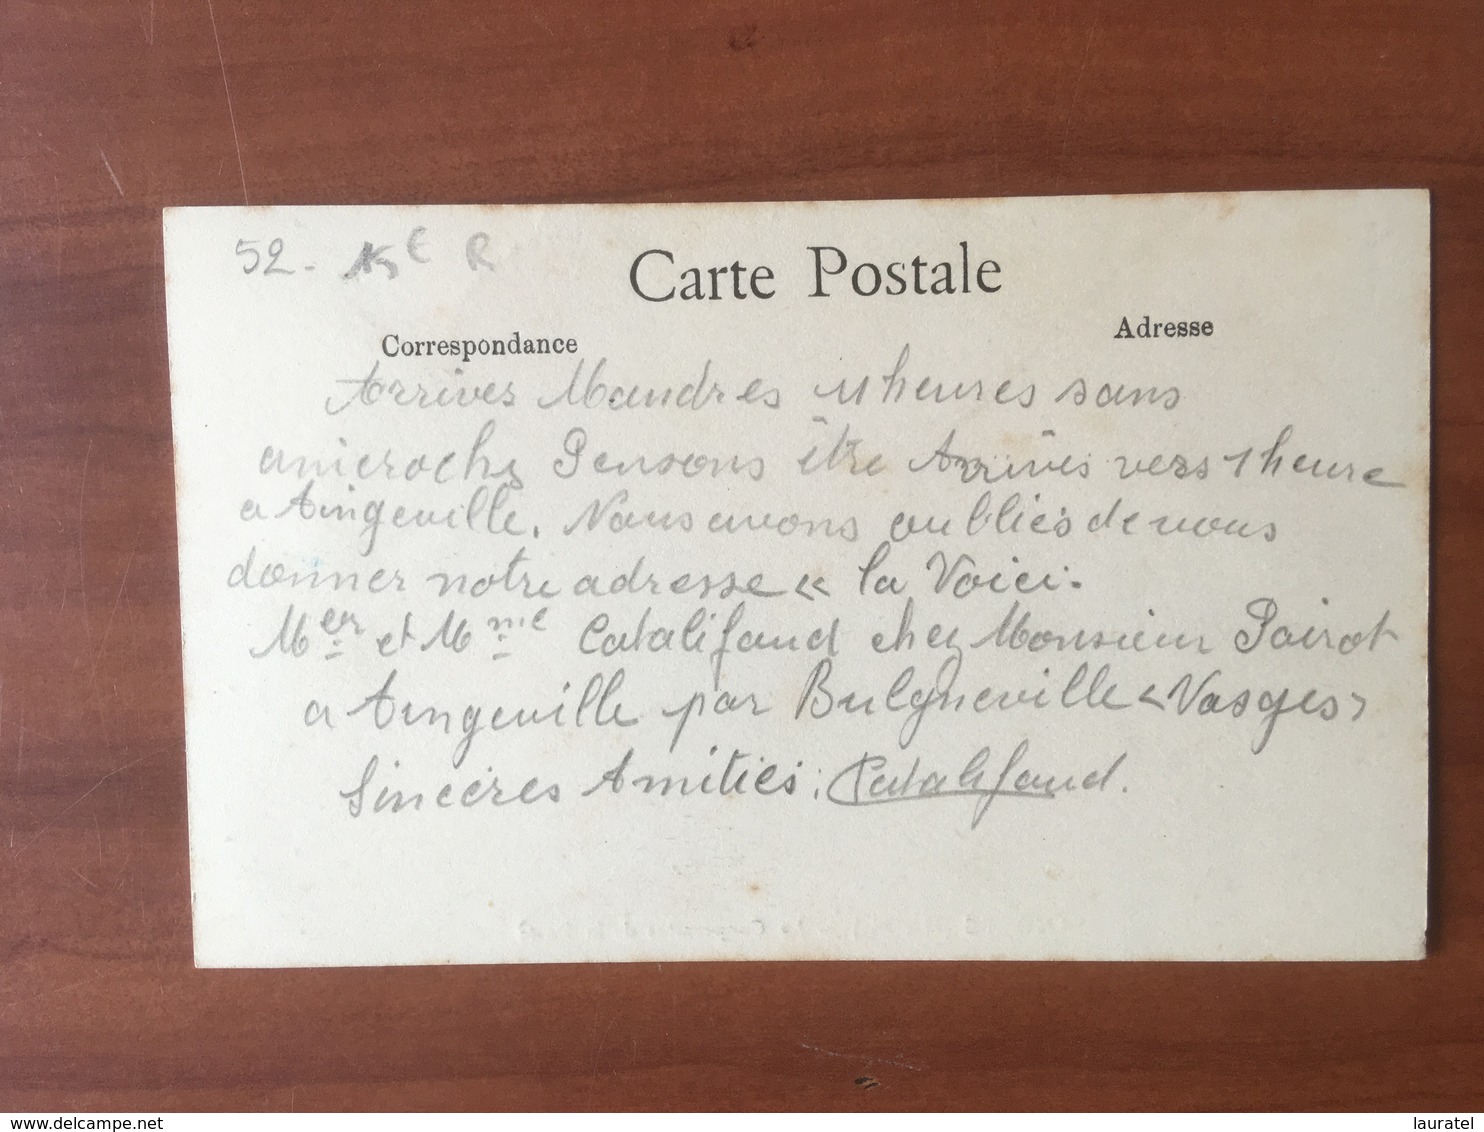 52. 15 € R
Carte Postale
Correspondance
Adresse
Arrives Mandres 11 heures sans
anicroche Pensons être Arrivés vers 1 heure
a Aingeville. Nous avons oubliés de vous
donner notre adresse « la Voici.
Mer et Mme Catalifaud chez Monsieur Poirot
a Aingeville par Bulgneville «Vosges»
Sincères Amitiés : Catalifaud.
www.delcampe.net
lauratel